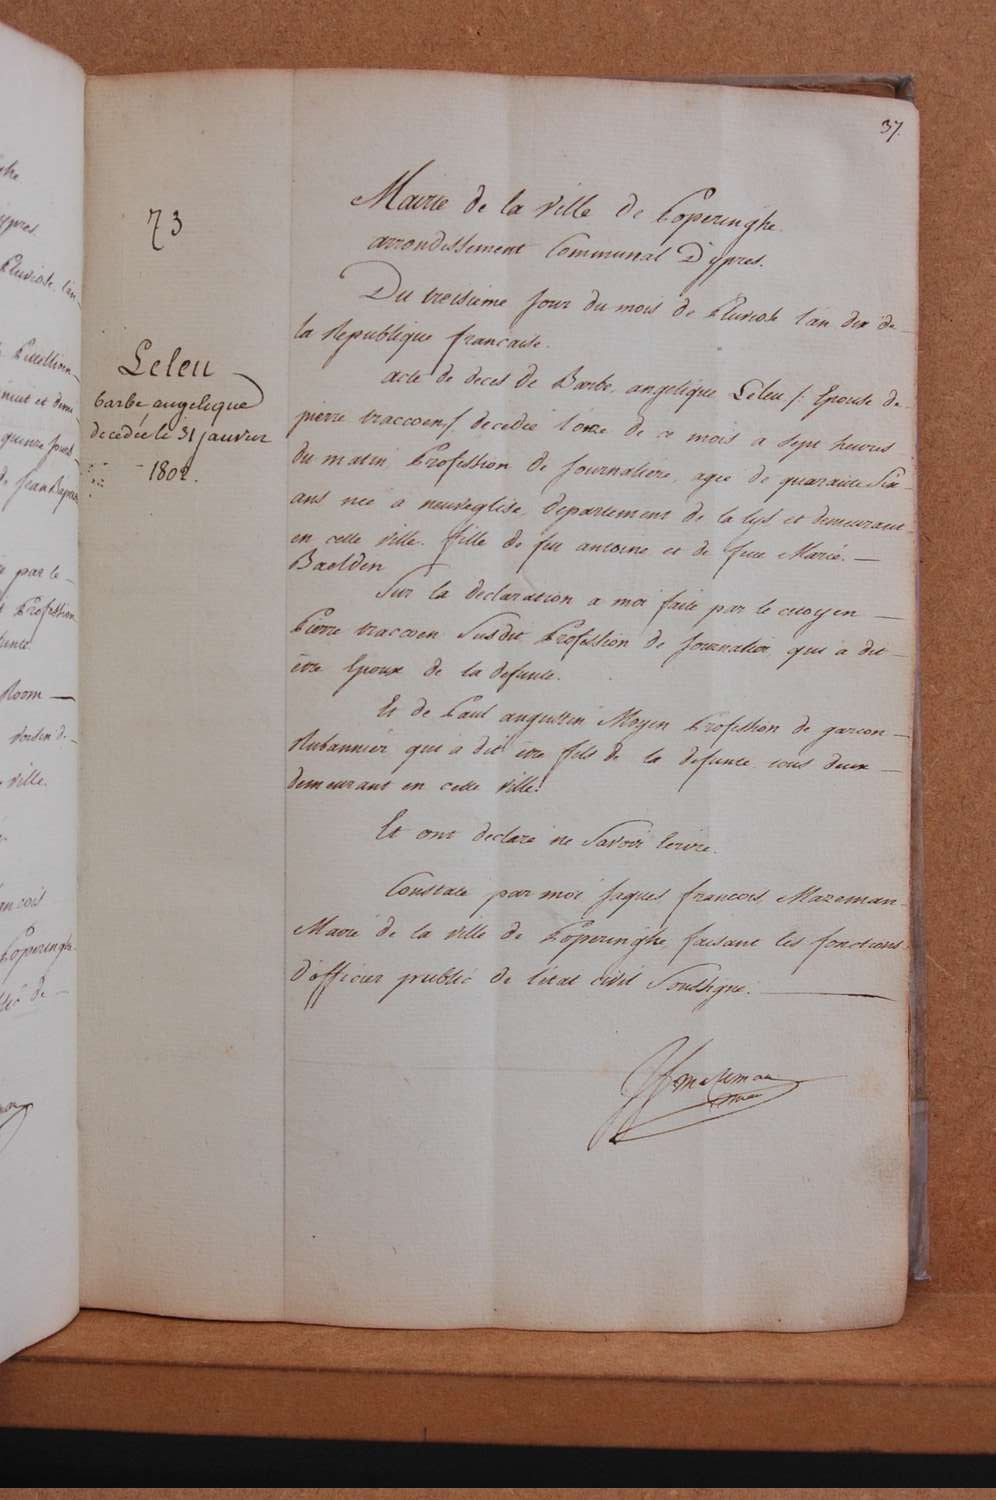 37.
73
Leleu
barbe angelique
decedée le 31 janvier
1802.
Mairie de la ville de Poperinghe.
arrondissement Communal D'ypres.
Du treisieme jour du mois de Pluviose l'an dix de
la Republique française.
acte de deces de Barbe, angelique Leleu /: Epouse de
pierre traccoen / decedée l'onze de ce mois a sept heures
du matin, Profession de Journaliere, agée de quarante Six
ans née à neuveglise, departement de la lys et demeurant
en cette ville. fille de feu antoine et de feue Marie.
Baelden
Sur la declaration a moi faite par le citoyen
Pierre traccoen Susdit Profession de Journalier qui a dit
être Epoux de la defunte.
Et de Paul augustin Moyen Profession de garcon
Rubannier qui à dit être fils de la defunte tous deux
demeurant en cette ville.
Et ont declaré ne Savoir Ecrire.
Constaté par moi Jaques francois Mazeman
Maire de la ville de Poperinghe, faisant les fonctions
d'officier public de l'état civil Soussigné.
JfmaZeman
maire